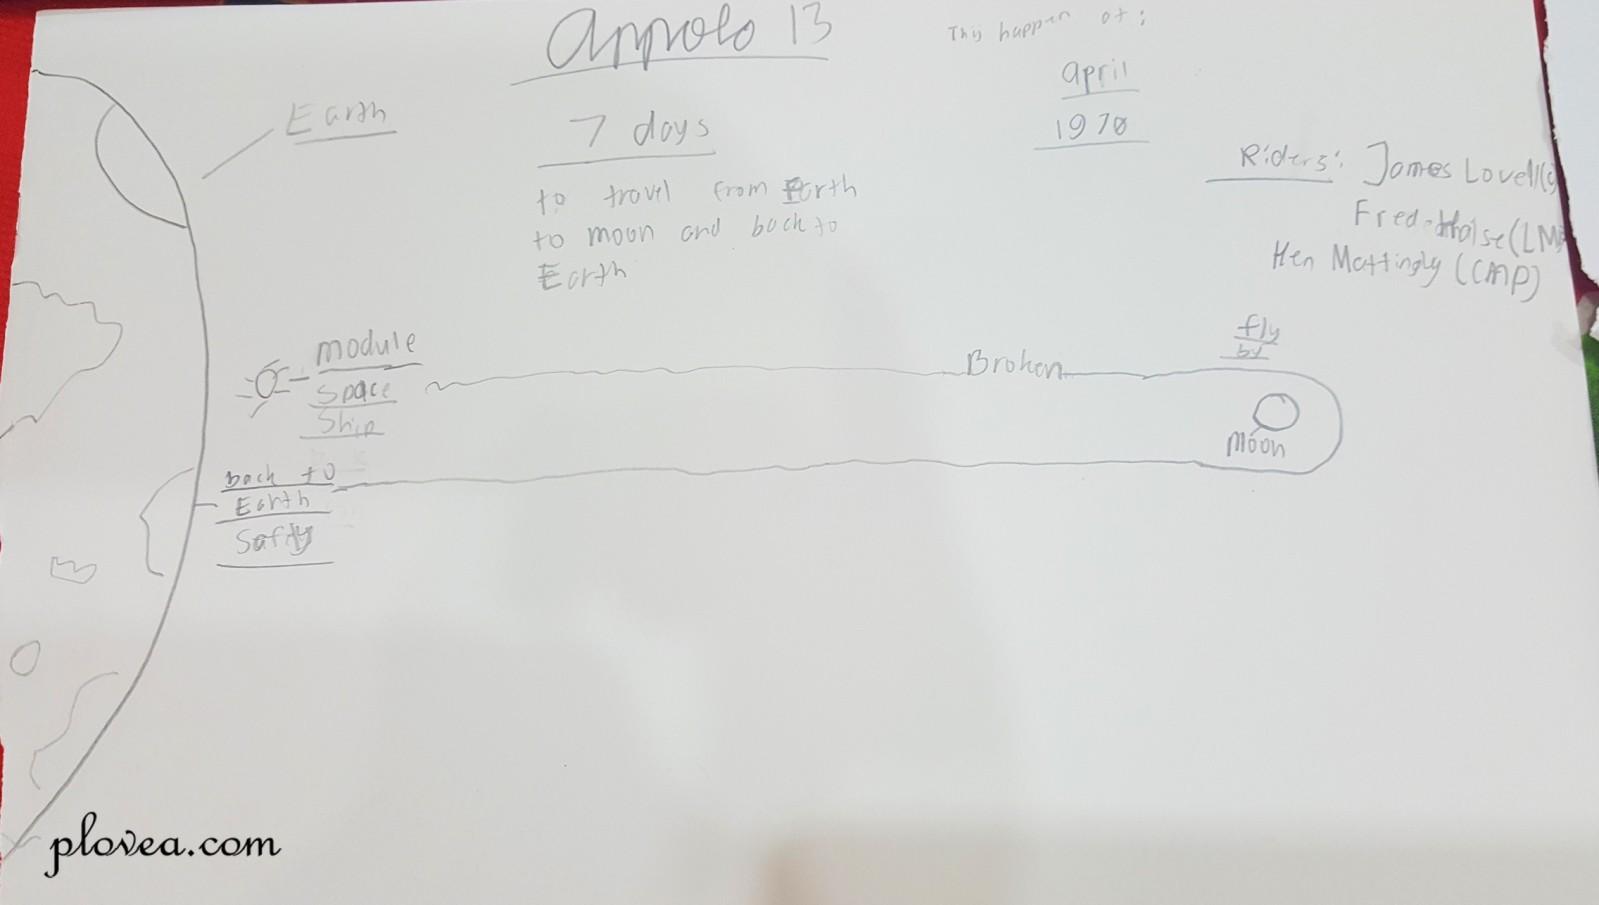 Appolo 13
This happen at:
April
1970
Earth
7 days
to travel from Earth
to moon and back to
Earth
Riders: James Lovell
Fred Haise (LM
Hen Mattingly (CMP)
module
Space
Ship
Broken
fly
by
Moon
back to
Earth
Safty
plovea.com